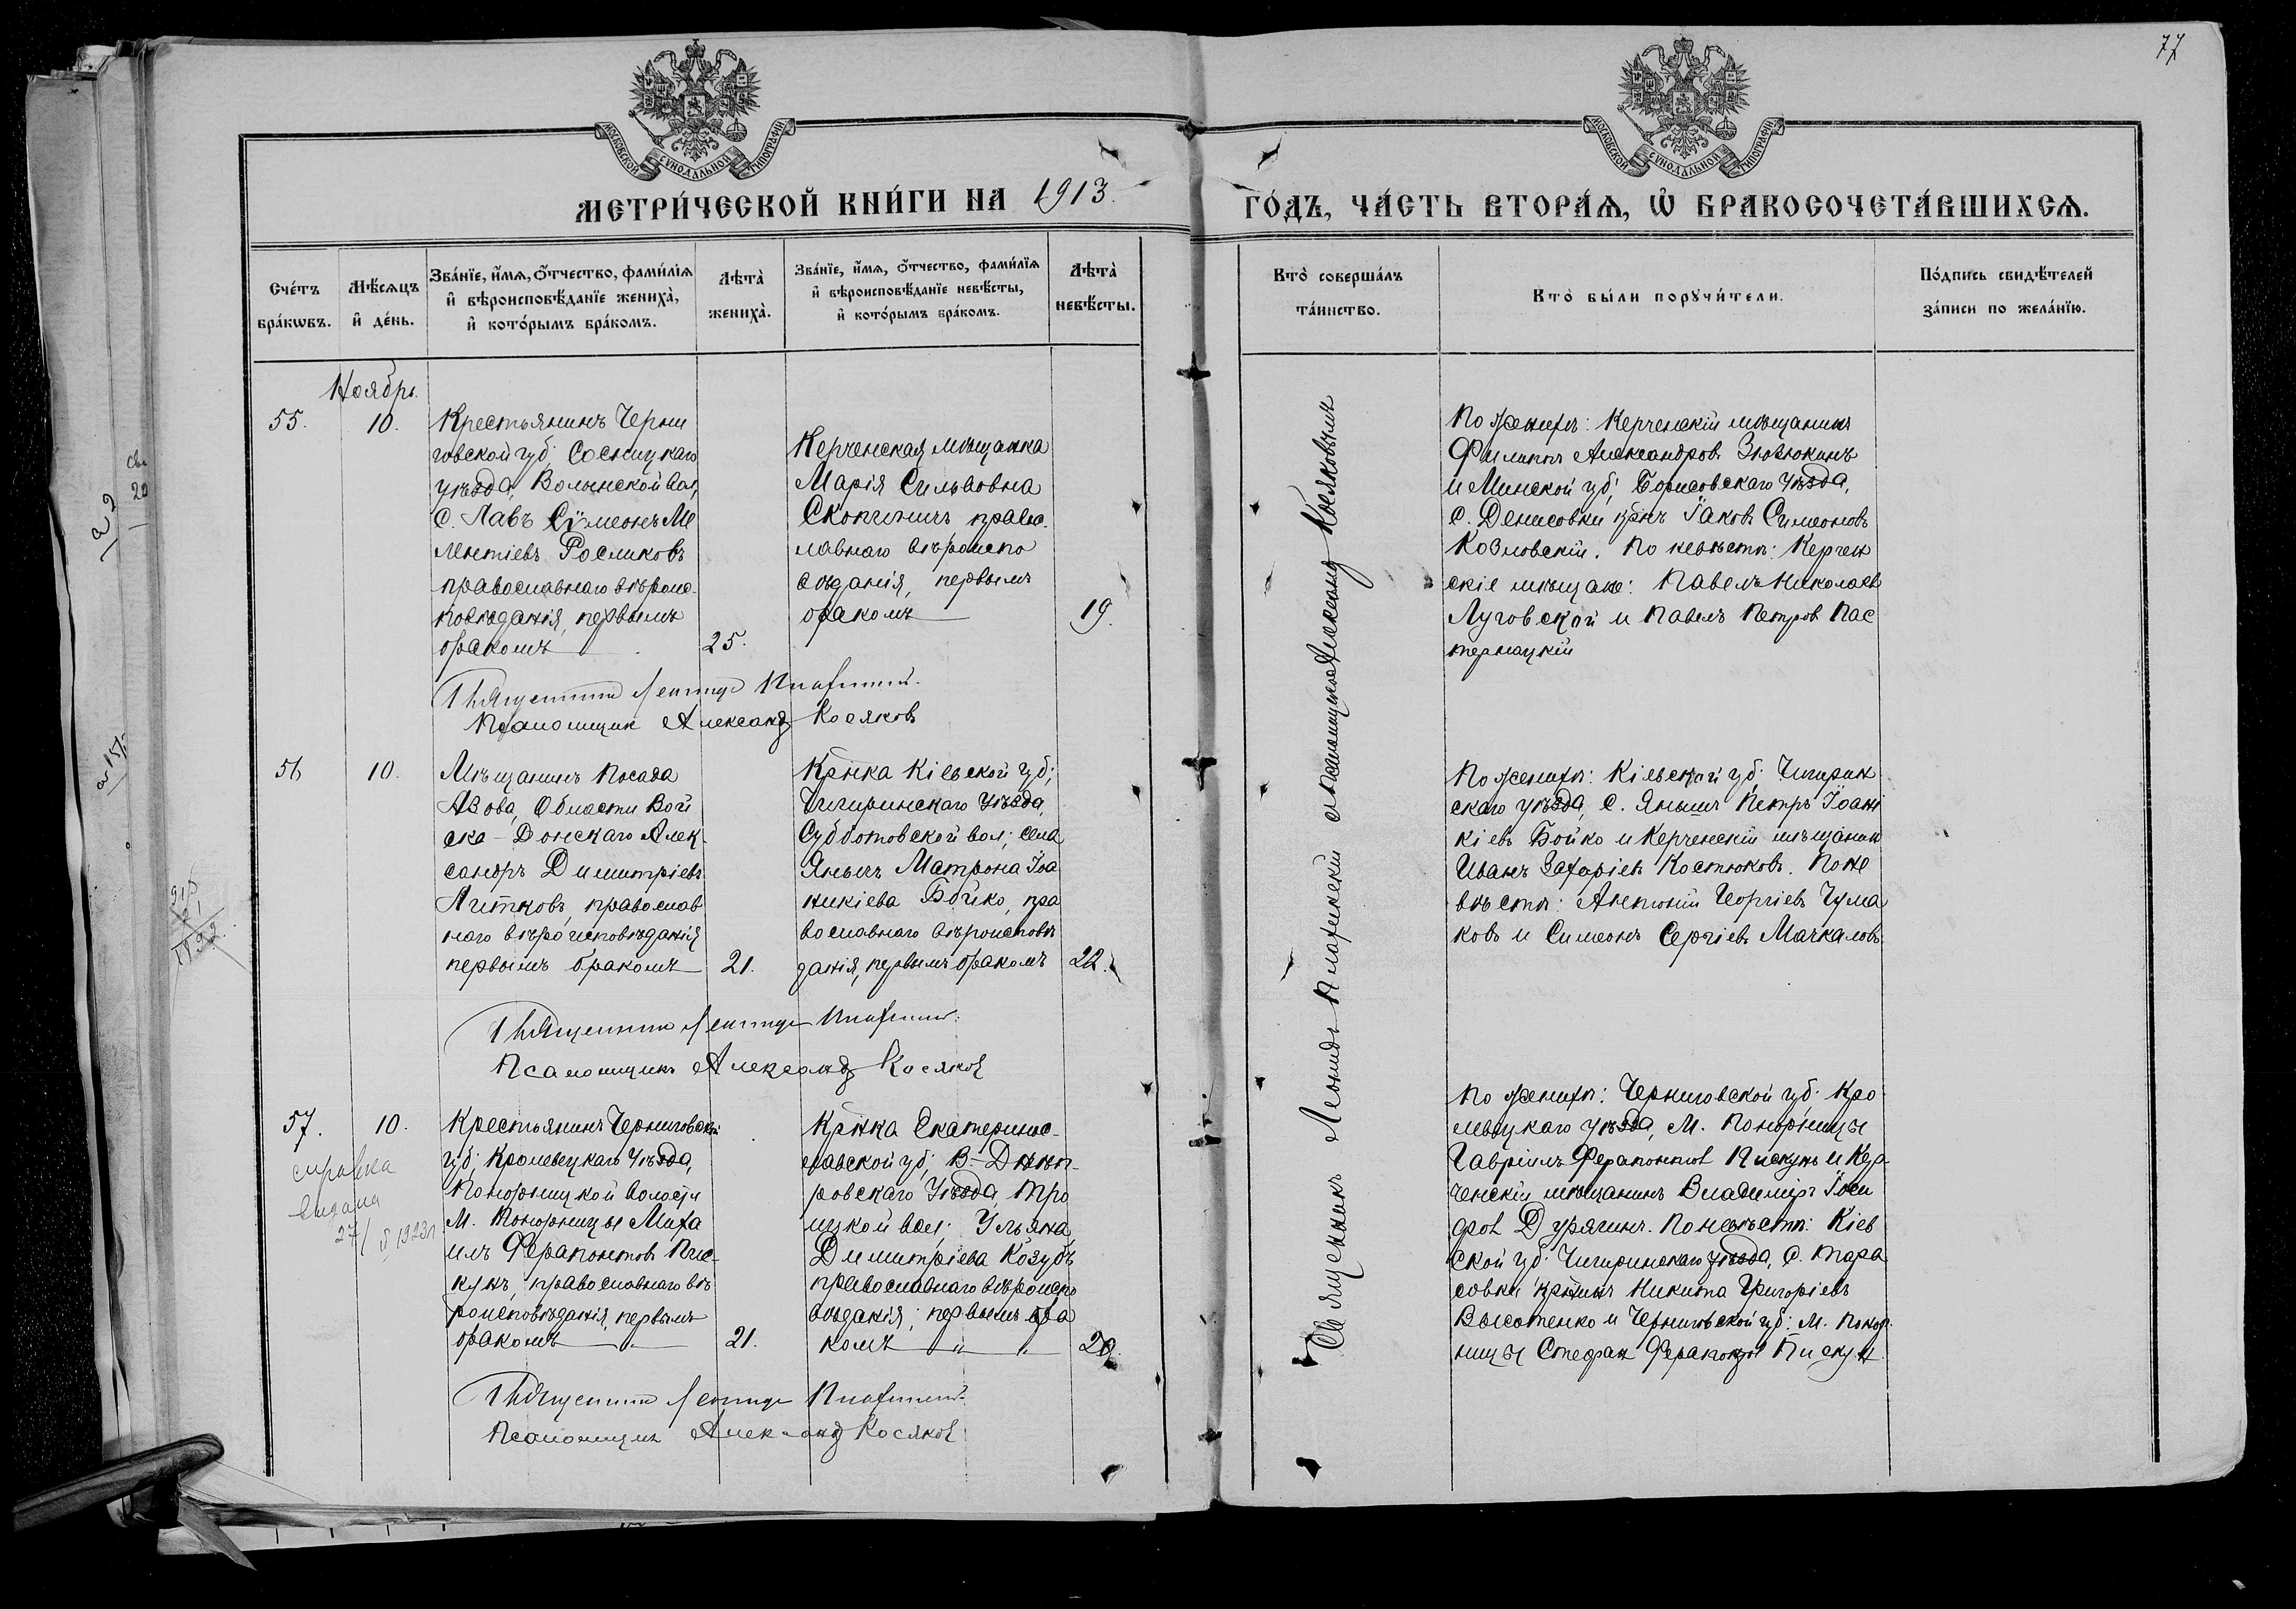 77
МОСКОВСКОЙ СѴНОДАЛЬНОЙ ТИПОГРАФІИ
МОСКОВСКОЙ СѴНОДАЛЬНОЙ ТИПОГРАФІИ
МЕТРИ́ЧЕСКОЙ КНИ́ГИ НА 1913.
ГО́ДЪ, ЧА́СТЬ ВТОРА́Ѧ, Ѡ҆ БРАКОСОЧЕТА́ВШИХСѦ.
Сче́тъ бра́кѡвъ.
Мѣ́сѧцъ и҆ де́нь.
Зва́нїе, и҆́мѧ, ѻ҆́тчество, фами́лїѧ
и҆ вѣроисповѣ́данїе жениха̀,
и҆ кото́рымъ бра́комъ.
Лѣта̀ жениха̀.
Зва́нїе, и҆́мѧ, ѻ҆́тчество, фами́лїѧ
и҆ вѣроисповѣ́данїе невѣ́сты,
и҆ кото́рымъ бра́комъ.
Лѣта̀ невѣ́сты.
Кто̀ соверша́лъ
та́инство.
Кто̀ бы́ли порꙋчи́тели.
По́дпись свидѣ́телей
за́писи по жела́нїю.
Ноябрь.
55.
10.
Крестьянинъ Черни
говской губ; Сосницкаго
уѣзда, Волынской вол,
с. Лавъ Сѵмеонъ Ме
лентіевъ Росликовъ
православнаго вѣроис-
повѣданія, первымъ
бракомъ
25.
Керченская мѣщанка
Марія Сильвовна
Скопичъ правос
лавнаго вѣроиспо
вѣданія, первымъ
бракомъ
19.
По женихѣ: Керченскій мѣщанинъ
Филиппъ Александровъ Зювюкинъ
и Минской губ; Борисовскаго уѣзда,
с. Денисовки крнъ Іаковъ Симеоновъ
Козловскій. По невѣстѣ: Керчен
скіе мѣщане: Павелъ Николаев
Луговской и Павелъ Петров Пас
тернацкій
Священникъ Леонидъ
Псаломщик Александ Косяковъ
56
10.
Мѣщанинъ Посада
Азова, Области Вой
ска-Донскаго Алек
сандръ Димитріевъ
Литковъ, православ
наго вѣроисповѣданія
первымъ бракомъ
21.
Крнка Кіевской губ;
Чигиринскаго уѣзда,
Субботовской вол; села
Янычъ Матрона Іоа
никіева Бойко, пра
вославнаго вѣроисповѣ
данія, первымъ бракомъ
22.
По женихѣ: Кіевской губ. Чигирин
скаго уѣзда, с. Янычъ Петръ Іоани
кіевъ Бойко и Керченскій мѣщанин
Иванъ Захаріевъ Костюковъ. По не
вѣстѣ: Антоній Георгіевъ Чума
ковъ и Симеонъ Сергіевъ Мачкаловъ
Священникъ Леонидъ
Псаломщикъ Александ Косяков
57.
10.
справка
выдана
27/
Крестьянинъ Черниговской
губ; Кролевецкаго уѣзда,
Понорницкой волости
М. Понорницы Миха
илъ Ферапонтов Пис-
кунъ, православнаго вѣ
роисповѣданія, первымъ
бракомъ "
21.
Крнка Екатеринос-
лавской губ; В.-Днѣп-
ровскаго уѣзда, Тро
ицкой вол; Ульяна
Димитріева Козубъ
православнаго вѣроиспо
вѣданія; первымъ бра
комъ " "
20.
По женихѣ: Черниговской губ. Кро
левецкаго уѣзда, М. Понорницы
Гавріилъ Ферапонтов Пискунъ и Кер-
ченскій мѣщанинъ Владиміръ Іоси
фов Дурягинъ. По невѣстѣ: Кіев
ской губ. Чигиринскаго уѣзда, с. Тара
совки крнинъ Никита Григоріевъ
Высотенко и Черниговской губ: М. Понор
ницы Стефан Ферапонтов Пискун.
Священникъ Леонидъ
Псаломщик Александ Косяков
Священникъ Леонидъ съ псаломщикомъ Александ Косяковымъ